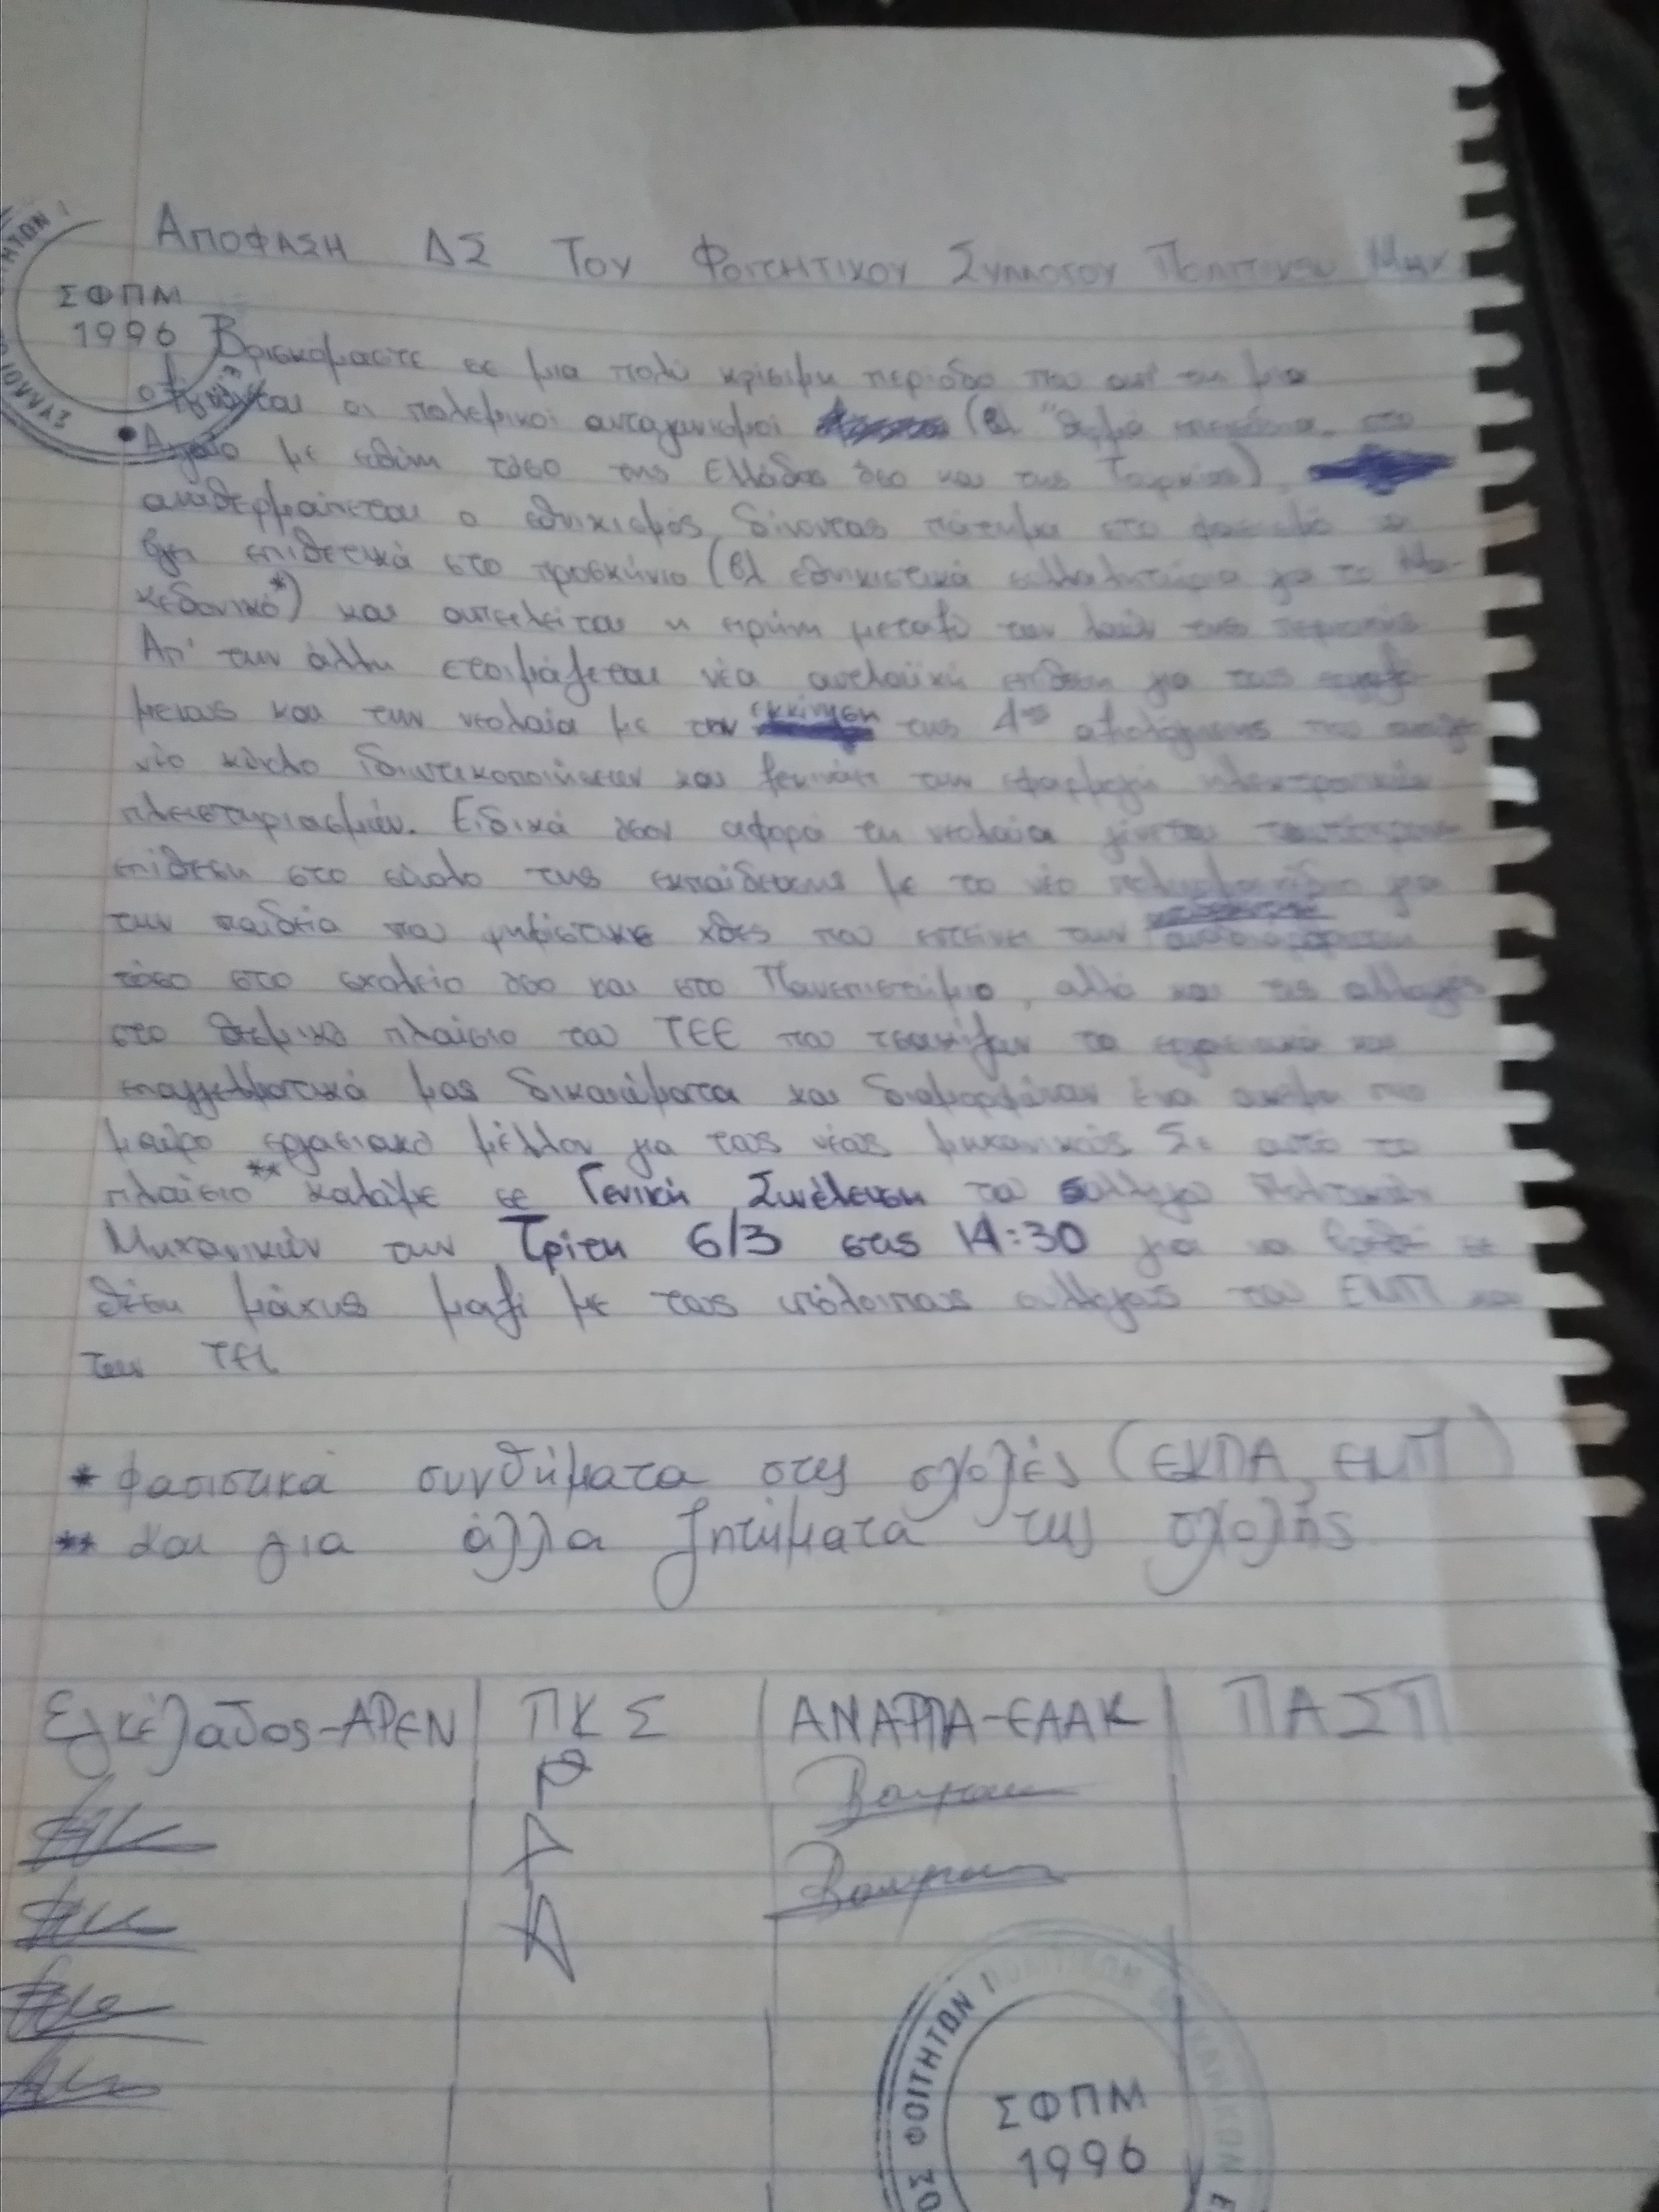 ΑΠΟΦΑΣΗ ΔΣ ΤΟΥ ΦΟΙΤΗΤΙΚΟΥ ΣΥΛΛΟΓΟΥ ΠΟΛΙΤΙΚΩΝ ΜΗΧ.
ΣΦΠΜ
1996
Βρισκόμαστε σε μια πολύ κρίσιμη περίοδο που απ' τη μια
οξύνονται οι πολεμικοί ανταγωνισμοί (βλ "θερμό επεισόδιο" στο
Αιγαίο με ευθύνη τόσο της Ελλάδας όσο και της Τουρκίας),
αναθερμαίνεται ο εθνικισμός δίνοντας πάτημα στο φασισμό να
βγει επιθετικά στο προσκήνιο (βλ εθνικιστικά συλλαλητήρια για το Μα-
κεδονικό*) και απειλείται η ειρήνη μεταξύ των λαών της περιοχής
Απ' την άλλη ετοιμάζεται νέα αντιλαϊκή επίθεση για τους εργαζο-
μένους και την νεολαία με την εκκίνηση της 4ης αξιολόγησης που
νέο κύκλο ιδιωτικοποιήσεων και ξεκινάει την εφαρμογή ηλεκτρονικών
πλειστηριασμών. Ειδικά όσον αφορά τη νεολαία γίνεται
επίθεση στο σύνολο της εκπαίδευσης με το νέο πολυνομοσχέδιο για
την παιδεία που ψηφίστηκε χθες που εντείνει την
τόσο στο σχολείο όσο και στο Πανεπιστήμιο, αλλά και τις αλλαγές
στο θεσμικό πλαίσιο του ΤΕΕ που τσακίζουν τα εργασιακά και
επαγγελματικά μας δικαιώματα και διαμορφώνουν ένα ακόμα πιο
μαύρο εργασιακό μέλλον για τους νέους μηχανικούς Σε αυτό το
πλαίσιο** καλούμε σε Γενική Συνέλευση του συλλόγου Πολιτικών
Μηχανικών την Τρίτη 6/3 στις 14:30 για να βρεθεί σε
θέση μάχης μαζί με τους υπόλοιπους συλλόγους του ΕΜΠ και
των ΤΕΙ
* φασιστικά συνθήματα στις σχολές (ΕΚΠΑ, ΕΜΠ)
** και για άλλα ζητήματα της σχολής
Εγκέλαδος-ΑΡΕΝ | ΠΚΣ | ΑΝΑΡΠΑ-ΕΑΑΚ | ΠΑΣΠ
ΦΟΙΤΗΤΩΝ ΠΟΛΙΤΙΚΩΝ
ΣΦΠΜ
1996